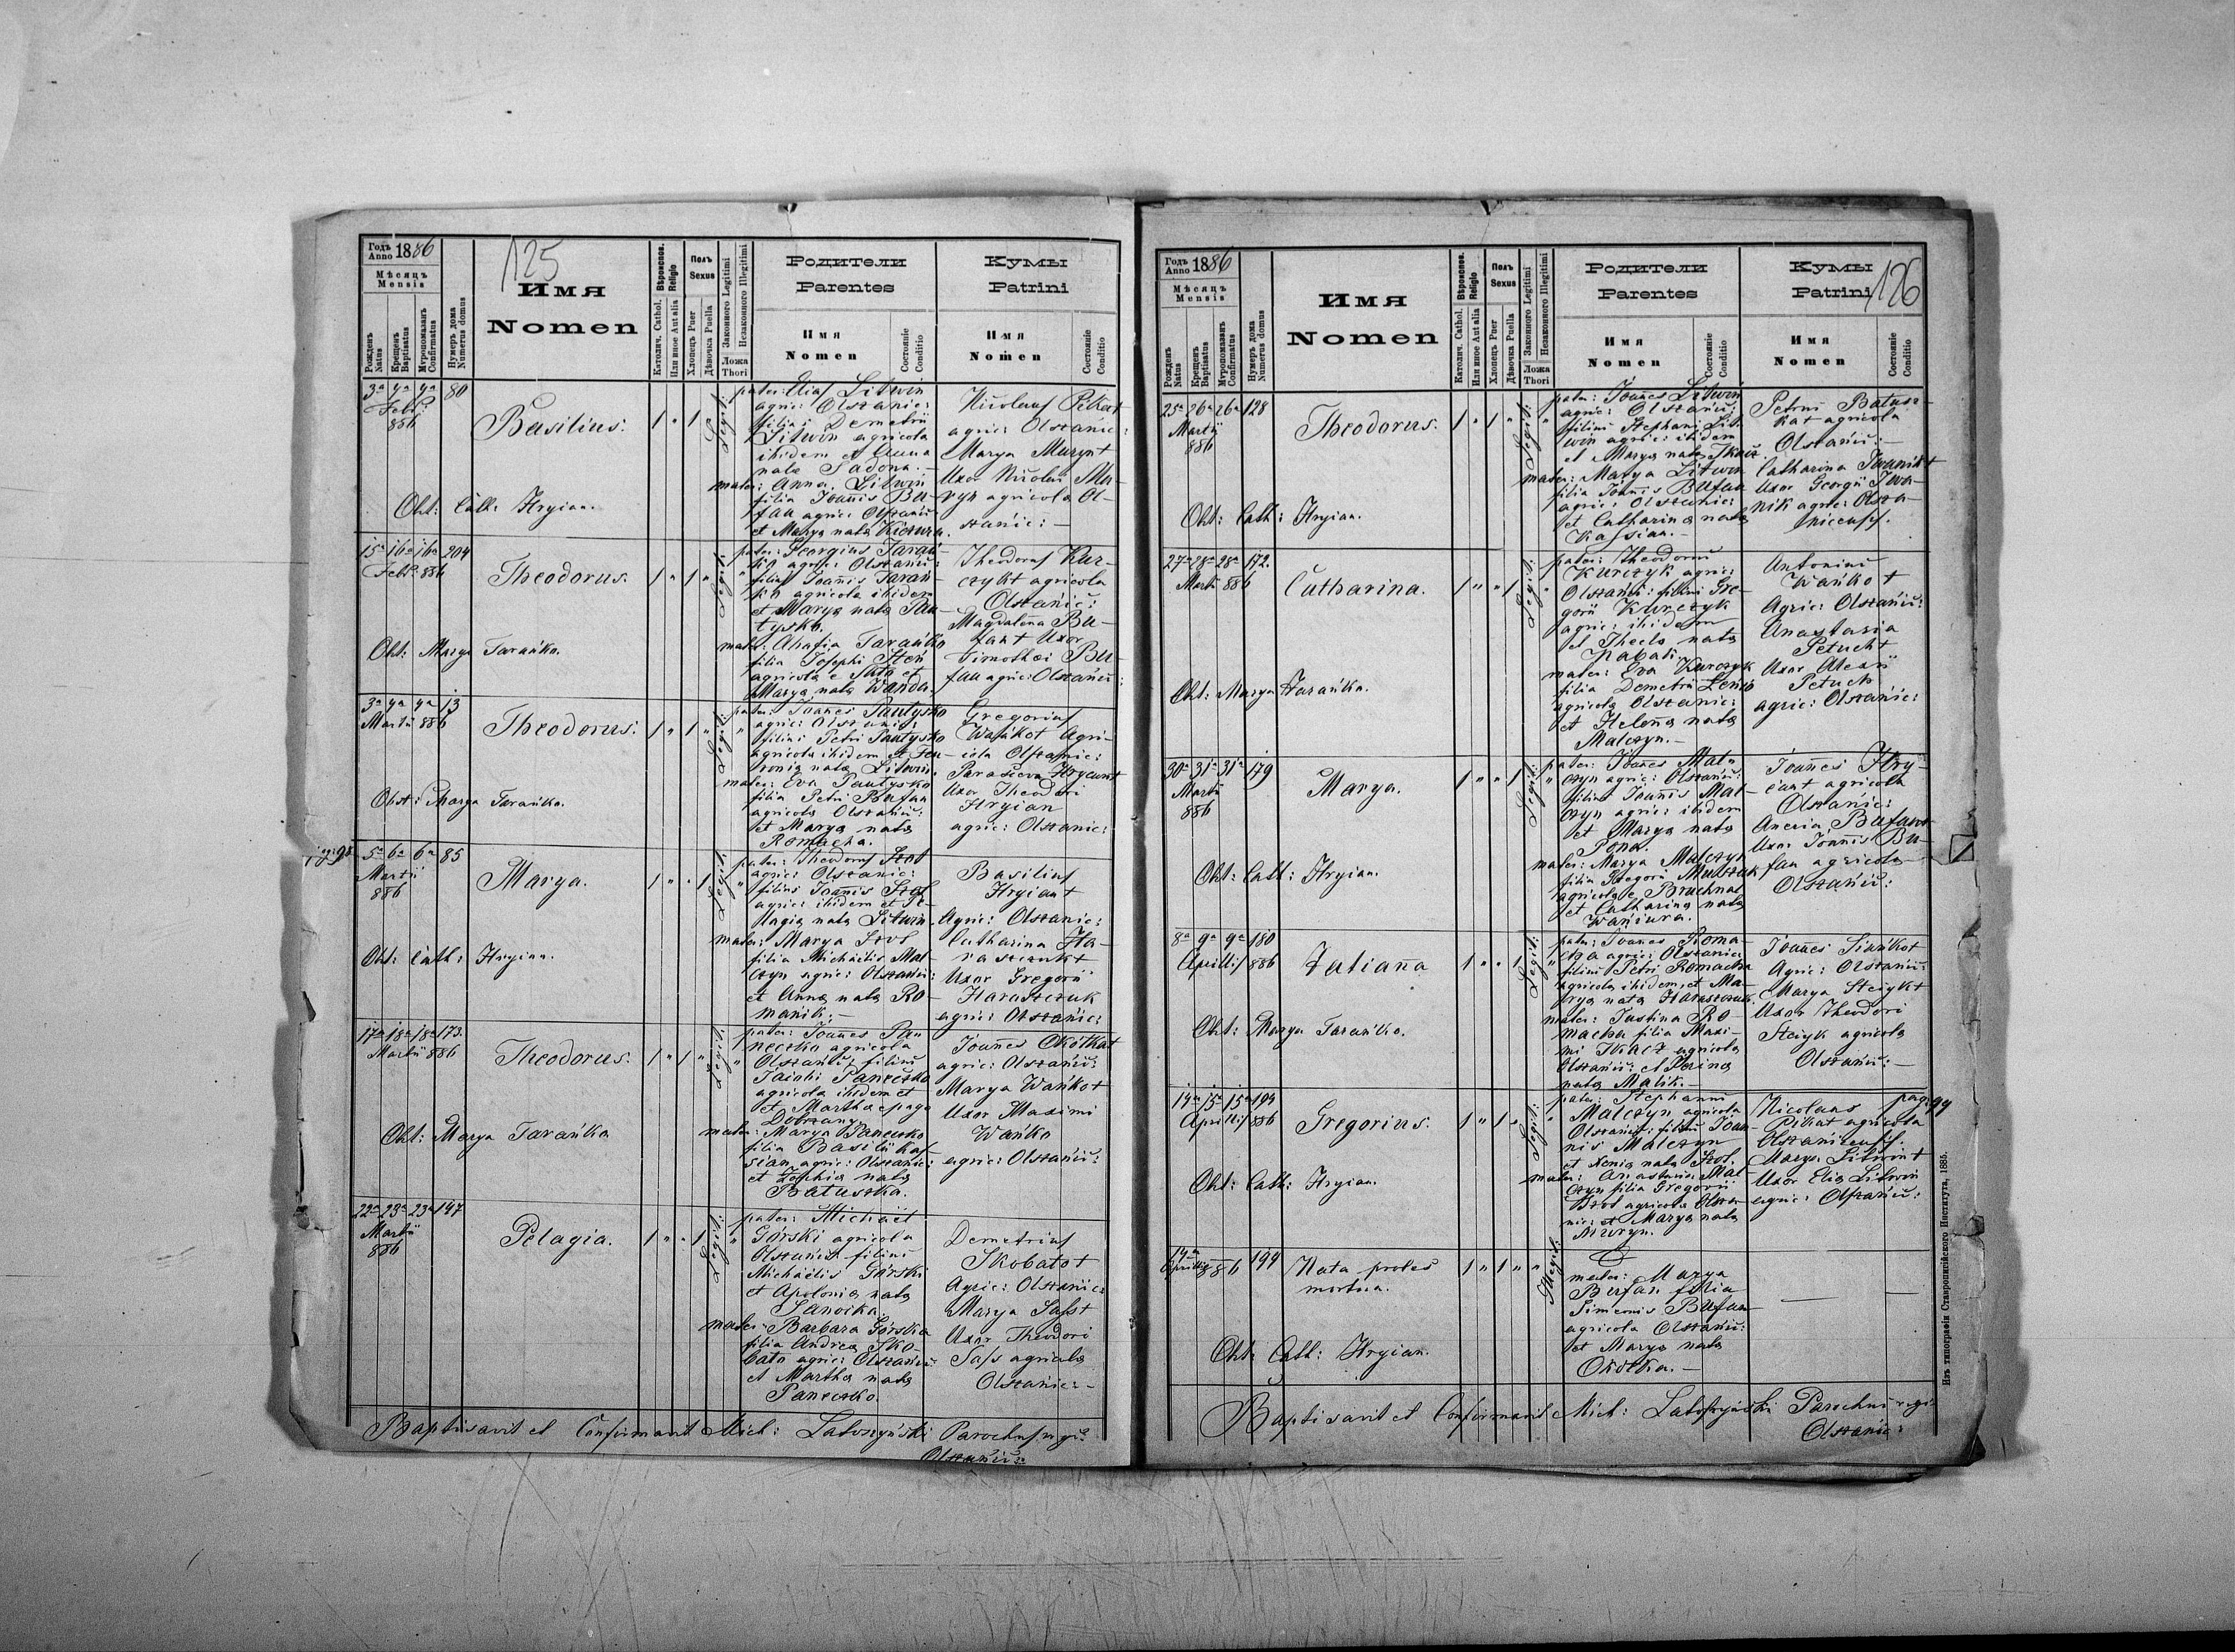 Годъ
Anno 1886
125
Мѣсяцъ
Mensis
Рожденъ
Natus
Крещенъ
Baptisatus
Муропомазанъ
Confirmatus
Нумеръ дома
Numerus domus
Имя
Nomen
Вѣроиспов.
Religio
Католич. Cathol.
Или иное Aut alia
Полъ
Sexus
Хлопецъ Puer
Дѣвочка Puella
Законного Legitimi
Незаконного Illegitimi
Ложа
Thori
Родители
Parentes
Имя
Nomen
Состояніе
Conditio
Кумы
Patrini
Имя
Nomen
Состояніе
Conditio
3a 4a 4a 80
Febr:
886
Basilius.
1 " 1
Legit:
pater: Elias Litwin
agric: Olszanic:
filius Demetrii
Litwin agricola
ibidem et Anna
nata Sadona.-
mater: Anna Litwin
filia Joannis Bu-
fan agric: Olszanic:
et Marya nata
Nicolaus Pikat
agric: Olszanic:
Marya Muryn +
Uxor Nicolai Mu-
ryn agricola Ol-
szanic: -
Obst: Cath: Hryian.
15a 16a 16a 204
Febr: 886
Theodorus.
1 " 1 "
Legit:
pater: Georgius Tarań-
ko agric: Olszanic:
filius Joannis Tarań-
ko agricola ibidem
et Marya nata Pau-
tysko.
mater: Ahafia Tarańko
filia Josephi Steń
agricola e
Marya nata Wanda.
Theodorus Kur-
czyk + agricola
Olszanic:
Magdalena Bu-
fan + Uxor
Timothei Bu-
fan agric: Olszanic:
Obst: Marya Tarańko.
3a 4a 4a 13
Martii 886
Theodorus.
1 " 1 "
Legit:
pater: Joannes Pautysko
agric: Olszanic:
filius Petri Pautysko
agricola ibidem et Feu-
ronia nata Litwin.
mater: Eva Pautysko
filia Petri Bufan
agricola Olszanic:
et Marya nata
Romacha.
Gregorius
Wańko + Agri-
cola Olszanic:
Parascewa Hrycun +
Uxor Theodori
Hryian
agric: Olszanic:
Obst: Marya Tarańko.
5a 6a 6a 85
Martii
886
Marya.
1 " " 1
Legit:
pater: Theodorus Szot
agric: Olszanic:
filius Joannis Szot
agric: ibidem et Pe-
lagia nata Litwin.
mater: Marya Szot
filia Michaelis Mal-
czyn agric: Olszanic:
et Anna nata Ro-
manik.-
Basilius
Hryian +
Agric: Olszanic:
Catharina Ha-
raszczuk +
Uxor Gregorii
Haraszczuk
agric: Olszanic:
Obst: Cath: Hryian.
17a 18a 18a 173
Martii 886
Theodorus.
1 " 1 "
Legit:
pater: Joannes Pa-
neczko agricola
Olszanic: filius
Jacobi Paneczko
agricola ibidem et
et Martha e pago
Dobrzany
mater: Marya Paneczko
filia Basilii Kas-
sian agric: Olszanic:
et Zophia nata
Batuszka.
Joannes Okółka +
agric: Olszanic:
Marya Wańko +
Uxor Maximi
Wańko
agric: Olszanic:
Obst: Marya Tarańko
22a 23a 23a 147
Martii
886
Pelagia.
1 " " 1
Legit:
pater: Michael
Górski agricola
Olszanic: filius
Michaelis Górski
et Apolonia nata
Sanocka.
mater: Barbara Górska
filia Andrea Sko-
bato agric: Olszanic:
et Martha nata
Paneczko.
Demetrius
Skobato +
Agric: Olszanic:
Marya Sass +
Uxor Theodori
Sass agricola
Olszanic: -
Baptisavit et Confirmavit Mich: Latoszyński Parochus
Olszanic:
Годъ
Anno 1886
126
Мѣсяцъ
Mensis
Рожденъ
Natus
Крещенъ
Baptisatus
Муропомазанъ
Confirmatus
Нумеръ дома
Numerus domus
Имя
Nomen
Вѣроиспов.
Religio
Католич. Cathol.
Или иное Aut alia
Полъ
Sexus
Хлопецъ Puer
Дѣвочка Puella
Законного Legitimi
Незаконного Illegitimi
Ложа
Thori
Родители
Parentes
Имя
Nomen
Состояніе
Conditio
Кумы
Patrini
Имя
Nomen
Состояніе
Conditio
25a 26a 26a 128
Martii
886
Theodorus.
1 " 1 "
Legit:
pater: Joannes Litwin
agric: Olszanic:
filius Stephani Lit-
win agric: ibidem
et Marya nata Tkacz.
mater: Marya Litwin
filia Joannis Bufan
agric: Olszanic:
et Catharina nata
Kassian.-
Petrus Batusz-
ka + agricola
Olszanic: -
Catharina Iwanik +
Uxor Georgii Iwa-
nik agric: Olsza-
nicensis.
Obst: Cath: Hryian.
27a 28a 28a 172.
Martii 886
Catharina.
1 " " 1
Legit:
pater: Theodorus
Kurczyk agric:
Olszanic: filius Gre-
gorii Kurczyk
agric: ibidem
et Thecla nata
Kabati.
mater: Eva Kurczyk
filia Demetrii Leńio
agricola Olszanic:
et Helena nata
Malczyn.-
Antonius
Wańko +
Agric: Olszanic:
Anastasia
Petuch +
Uxor Alexii
Petuch
agric: Olszanic:
Obst: Marya Tarańko.
30a 31a 31a 179
Martii
886
Marya.
1 " " 1
Legit:
pater: Joannes Mal-
czyn agric: Olszanic:
filius Joannis Mal-
czyn agric: ibidem
et Marya nata
Popa.
mater: Marya Malczyn
filia Gregorii Muszuk
agricola e Bruchnal
et Catharina nata
Wańiura.
Joannes Hry-
cun + agricola
Olszanic:
Bufan +
Uxor Joannis Bu-
fan agricola
Olszanic:
Obst: Cath: Hryian.
8a 9a 9a 180
Aprillis 886
Tatiana
1 " " 1
Legit:
pater: Joannes Roma-
cha agric: Olszanic:
filius Petri Romacha
agricola ibidem, et Ma-
rya nata Haraszczuk.
mater: Justina Ro-
macha filia Maxi-
mi Tkacz agricola
Olszanic: et
nata Malik.-
Joannes Siańko +
Agric: Olszanic:
Marya Steiyk +
Uxor Theodori
Steiyk agricola
Olszanic: -
Obst: Marya Tarańko.
14a 15a 15a 194
Aprillis 886
Gregorius.
1 " 1 "
Legit:
pater: Stephanus
Malczyn agricola
Olszanic: filius Joan-
nis Malczyn
et Xenia nata Szot.
mater: Anastasia Mal-
czyn filia Gregorii
Szot agricola Olsza-
nic: et Marya nata
Muryn.
Nicolaus
Pikat agricola
Olszanicensis.
Marya Litwin +
Uxor Elia Litwin
agric: Olszanic:
Obst: Cath: Hryian.
14a
Aprillis 886 199
Nata proles
mortua.
1 " 1 " "
Illegit:
mater: Marya
Bufan filia
Simeonis Bufan
agricola Olszanic:
et Marya nata
Okółka.-
Obst: Cath: Hryian.
Baptisavit et Confirmavit Mich: Latoszyński Parochus
Olszanic:
Изъ типографіи Ставропигійского Института, 1885.